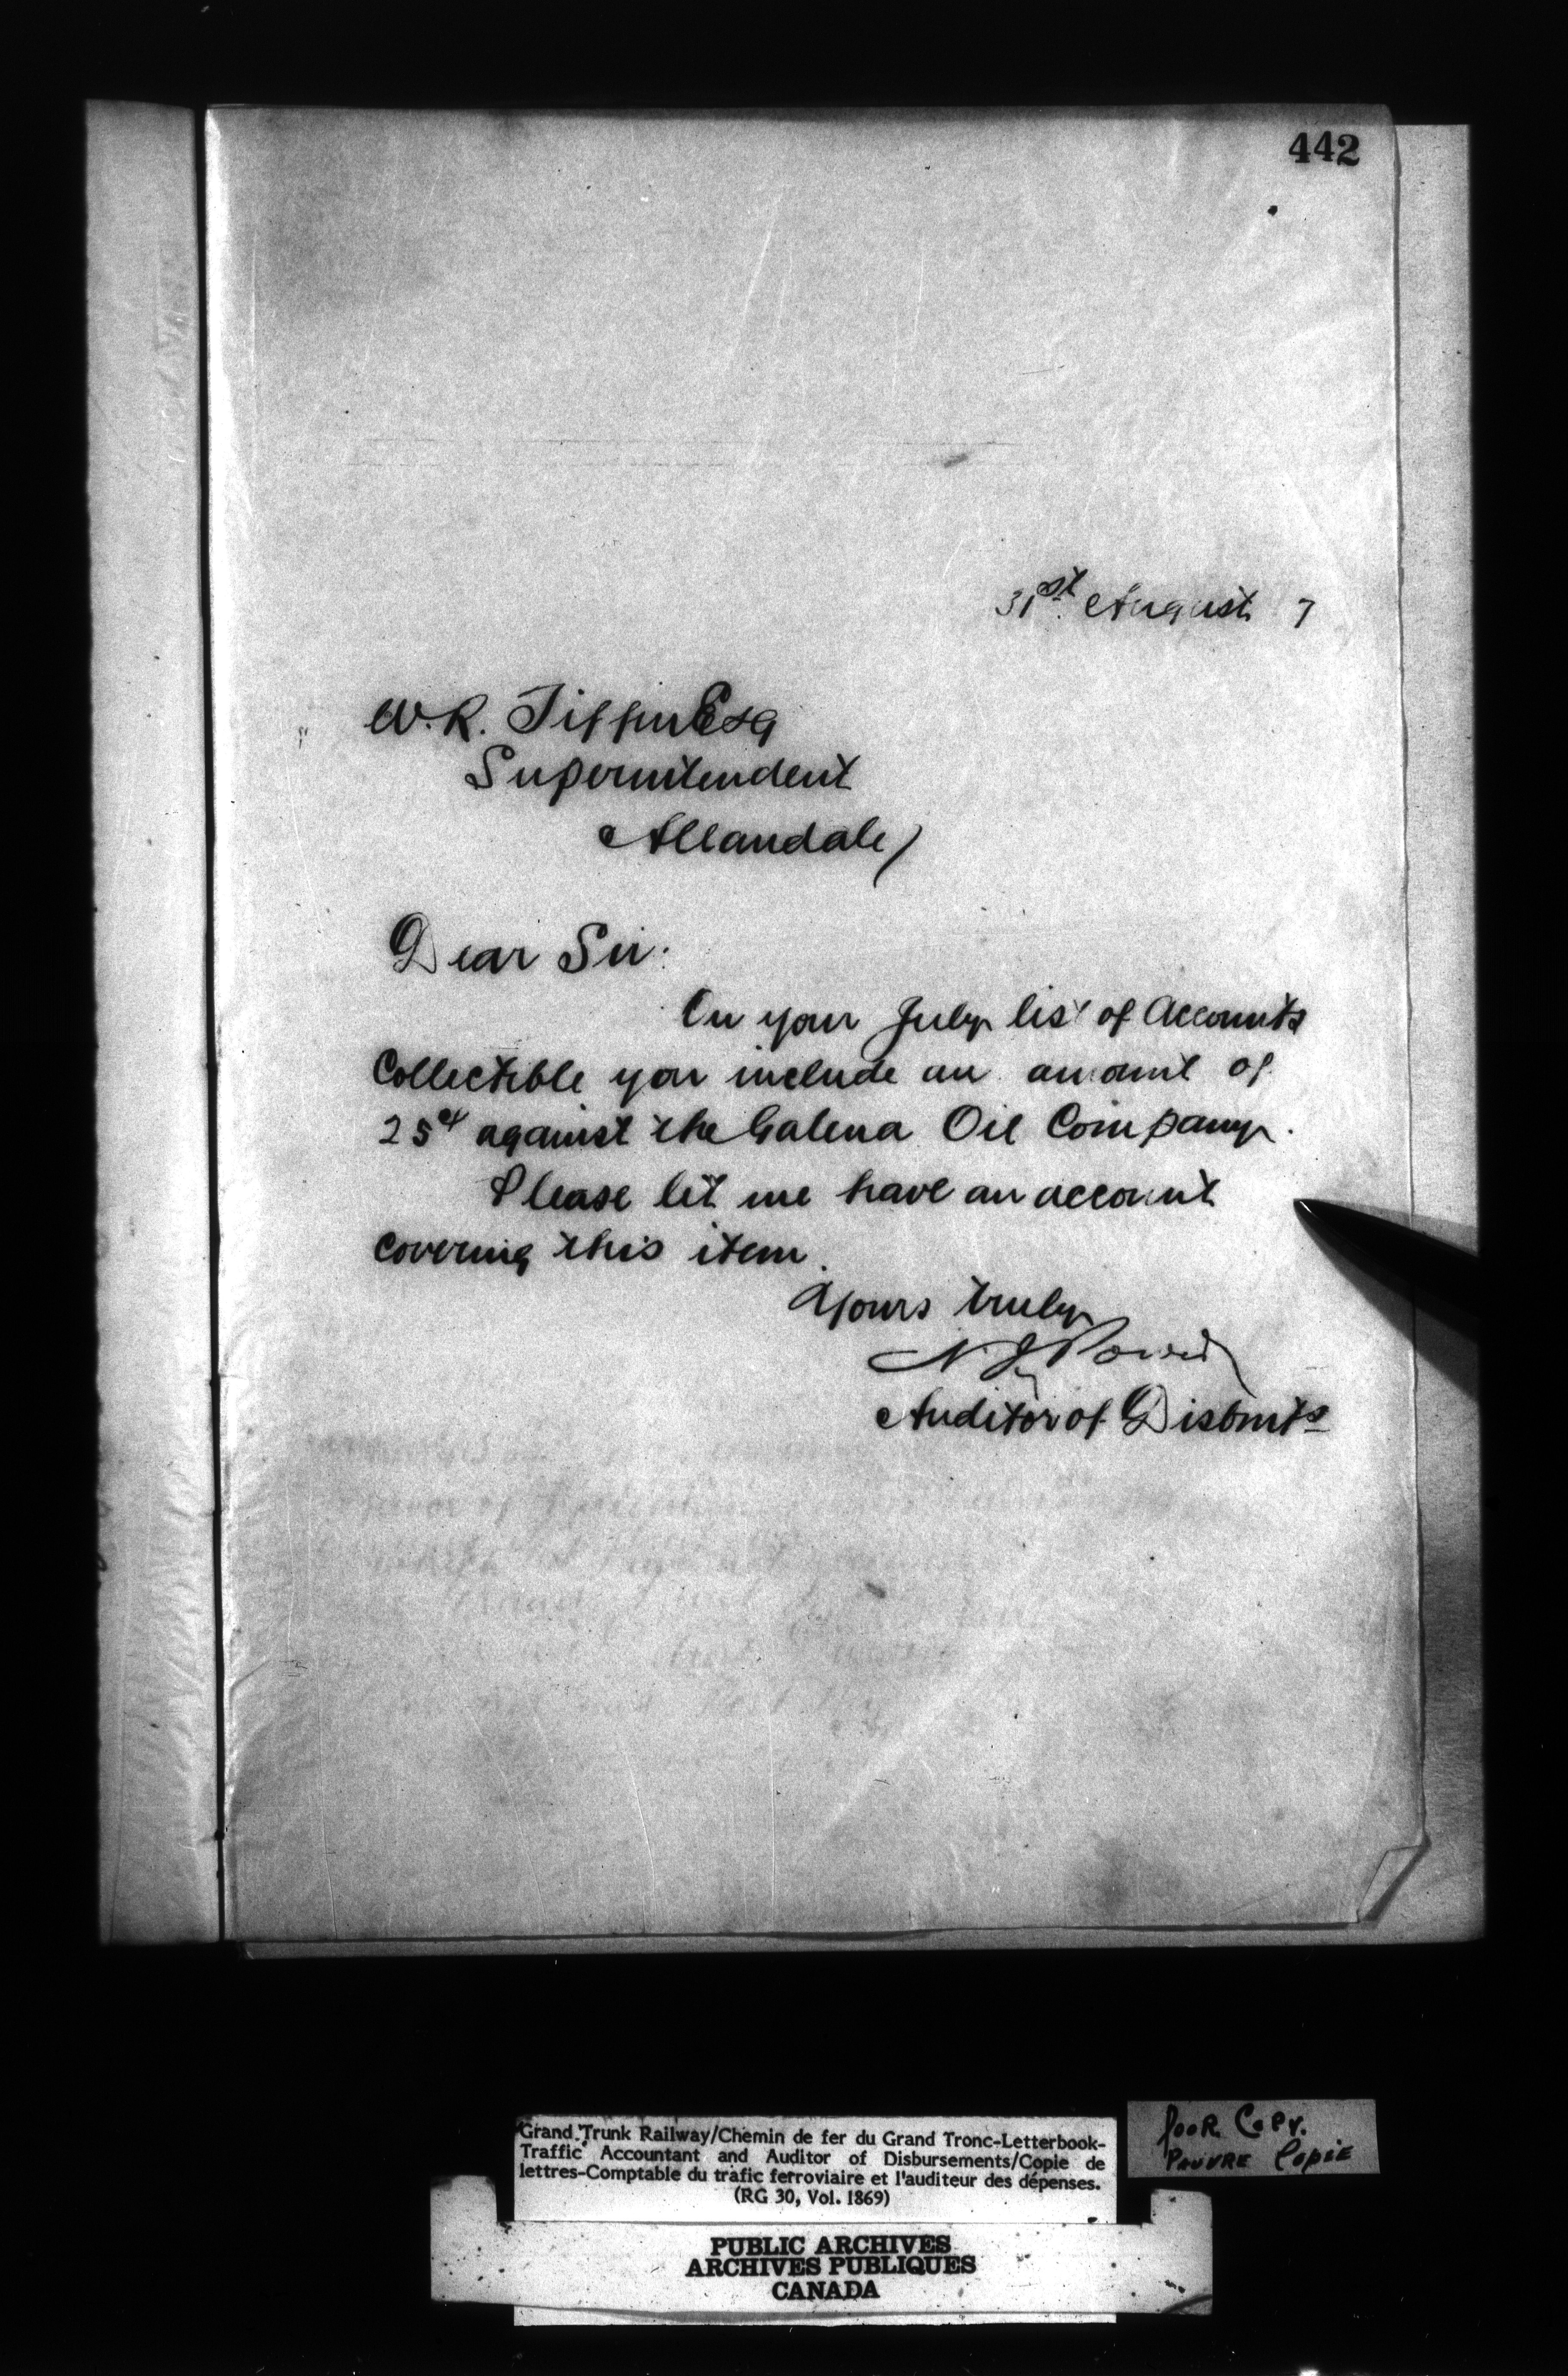 442
31st August 7
W. R. Tiffin Esq
Superintendent
Allandale
Dear Sir:
On your July list of Accounts
Collectible you include an amount of
25¢ against the Galena Oil Company.
Please let me have an account
covering this item.
Yours truly
N. J. Power
Auditor of Disbmts
Grand Trunk Railway/Chemin de fer du Grand Tronc-Letterbook-
Traffic Accountant and Auditor of Disbursements/Copie de
lettres-Comptable du trafic ferroviaire et l'auditeur des dépenses.
(RG 30, Vol. 1869)
Poor Copy.
Pauvre Copie
PUBLIC ARCHIVES
ARCHIVES PUBLIQUES
CANADA